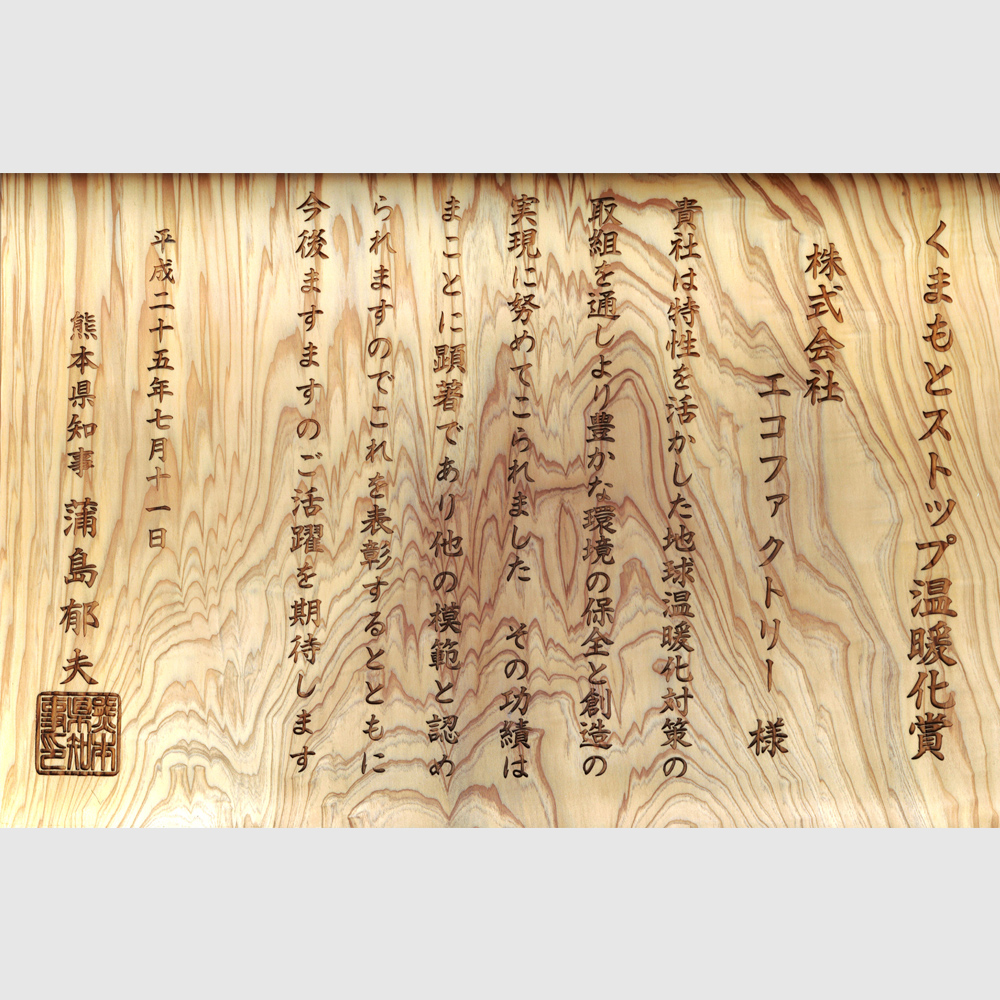 くまもとストップ温暖化賞
株式会社
エコファクトリー 様
貴社は特性を活かした地球温暖化対策の
取組を通しより豊かな環境の保全と創造の
実現に努めてこられました その功績は
まことに顕著であり他の模範と認め
られますのでこれを表彰するとともに
今後ますますのご活躍を期待します
平成二十五年七月十一日
熊本県知事 蒲島郁夫
熊本県知事之印